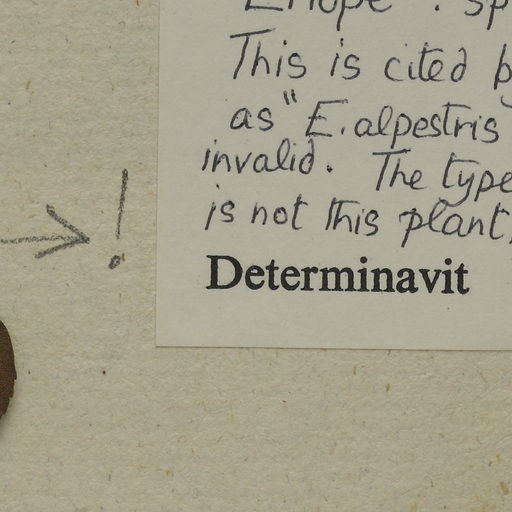 This is cited
as "E. alpestris
invalid. The type
is not this plant,
→ !
Determinavit